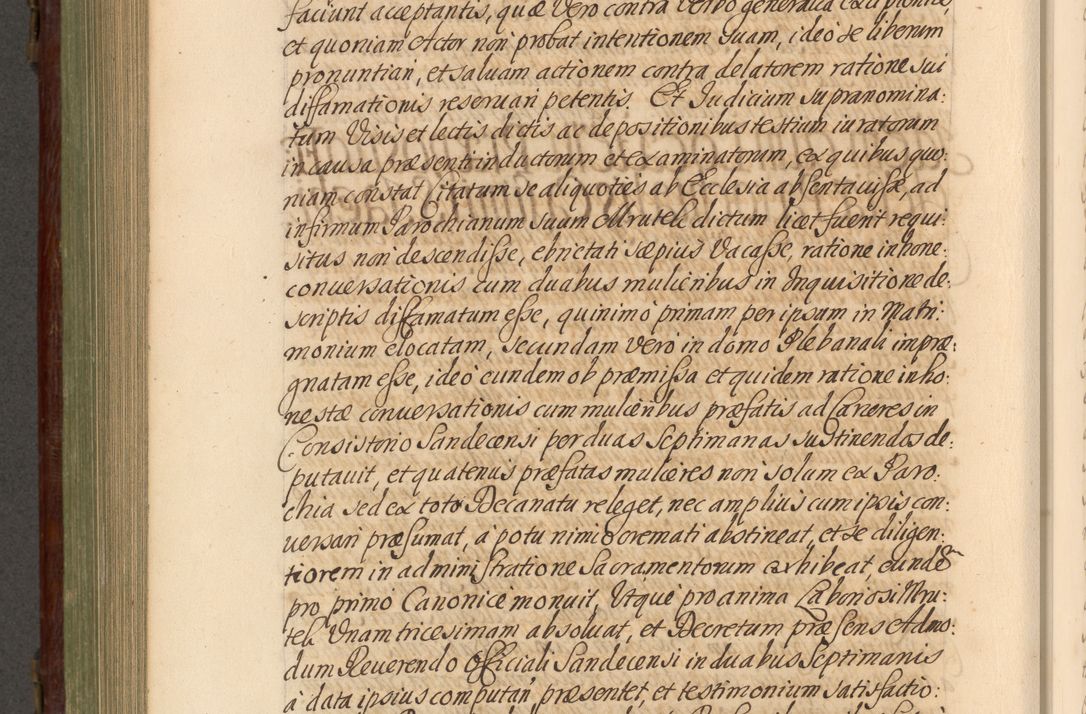 faciunt acceptantis, quæ Vero contra Verbo generalia excipientis,
et quoniam Actor non probat intentionem suam, ideo se liberum
pronuntiari, et saluam actionem contra delatorem ratione sui
diffamationis reseruari petentis. Et Judicium supranomina:
tum Visis et lectis dictis ac depositionibus testium iuratorum
in causa præsenti inductorum et examinatorum, ex quibus quo:
niam constat Citatum se aliquoties ab Ecclesia absentauisse, ad
infirmum Parochianum suum Mrutek dictum licet fuerit requi:
situs non descendisse, ebrietati sæpius Vacasse, ratione inhone:
conuersationis cum duabus mulieribus in Inquisitione de:
scriptis diffamatum esse, quinimo primam per ipsum in Matri:
monium elocatam, secundam Vero in domo Plebanali impræ:
gnatam esse, ideo eundem ob præmissa et quidem ratione inho:
nestæ conuersationis cum mulieribus præfatis ad Carceres in
Consistorio Sandecensi per duas Septimanas sustinendas de:
putauit, et quatenus præfatas mulieres non solum ex Paro:
chia sed ex toto Decanatu releget, nec amplius cum ipsis con:
uersari præsumat, a potu nimio cremati abstineat, et se diligen:
tiorem in administratione Sacramentorum exhibeat, eunde
pro primo Canonice monuit, Utque pro anima Laboriosi Mru:
tek Unam tricesimam absoluat, et Decretum præsens Admo:
dum Reuerendo Officiali Sandecensi in duabus Septimanis
a data ipsius computan præsentet, et testimonium satisfactio: